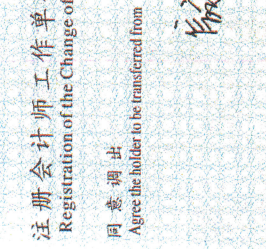 注册会计师工作单
Registration of the Change of
同意调出
Agree the holder to be transferred from